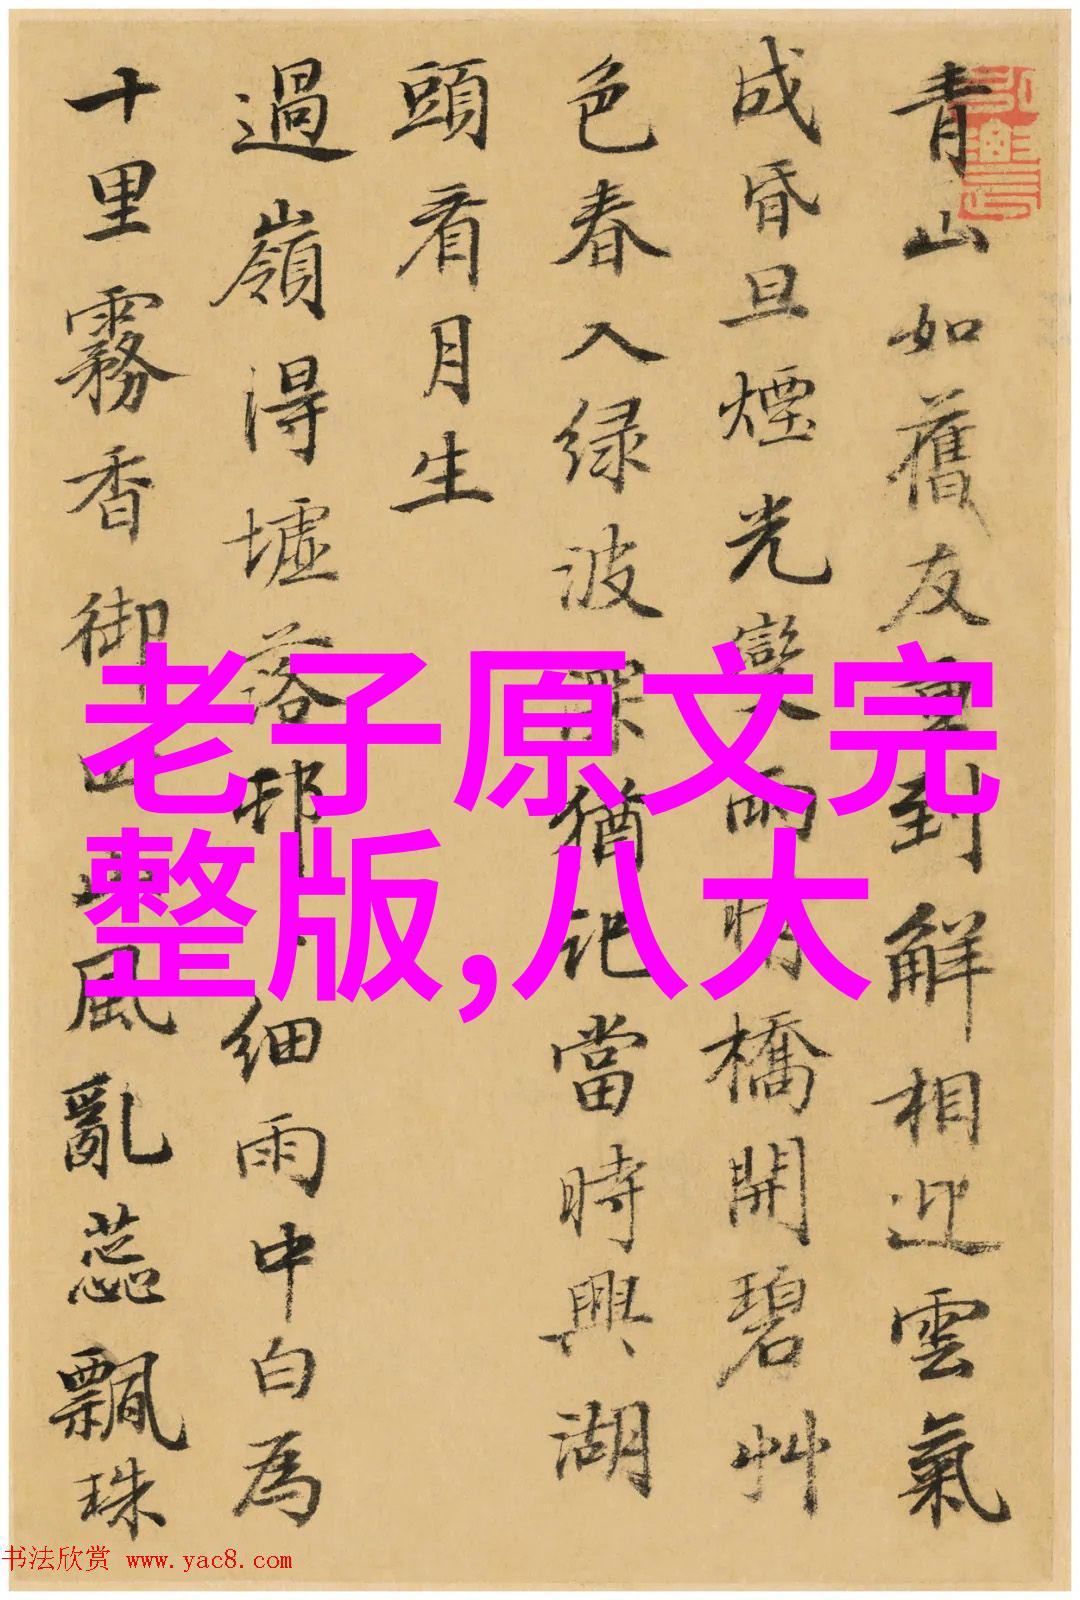 青山如舊友重到解相迎雲氣
成昏旦煙光變雨晴橋開碧艸
色春入绿波深猶記當時興湖
頭看月生
過嶺得墟落邨細雨中白為
十里霧香御四山風亂蕊飄珠
老子原文完
整版,八大
书法欣赏 www.yac8.com